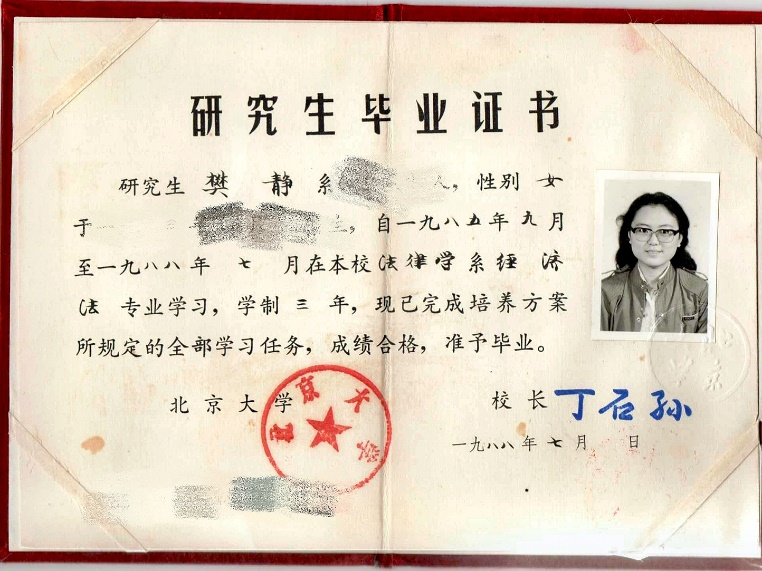 研究生毕业证书
研究生 樊 静 系 人，性别 女
于一 生，自一九八五年九月
至一九八八年 七 月在本校法律学系经 济
法 专业学习，学制 三 年，现已完成培养方案
所规定的全部学习任务，成绩合格，准予毕业。
北京大学
北京大学
校长 丁石孙
一九八八年七月 日